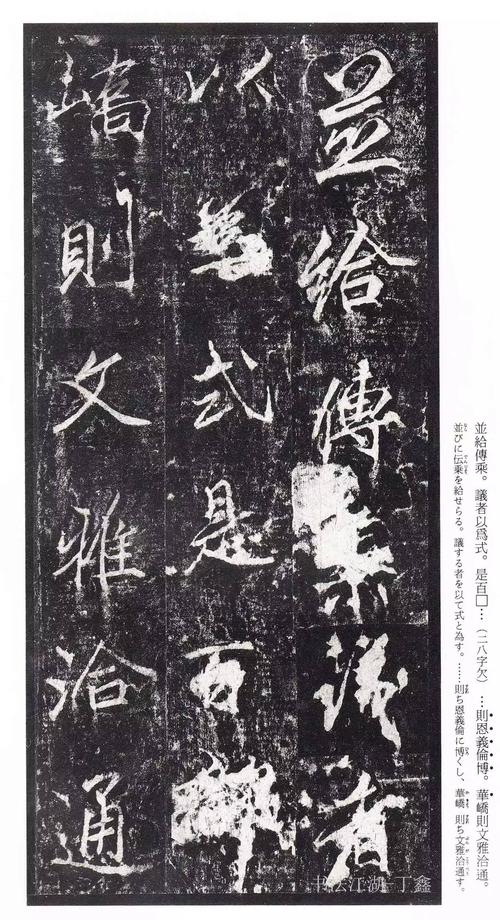 並給傳乘。議者以爲式。是百□…（二八字欠）…則恩義倫博。華嶠則文雅洽通。
並びに伝乗を給せらる。議する者を以て式と為す。……則ち恩義倫に博くし、華嶠、則ち文雅洽通す。
並給傳乘議者
以爲式是百
嶠則文雅洽通
书法江湖-丁鑫